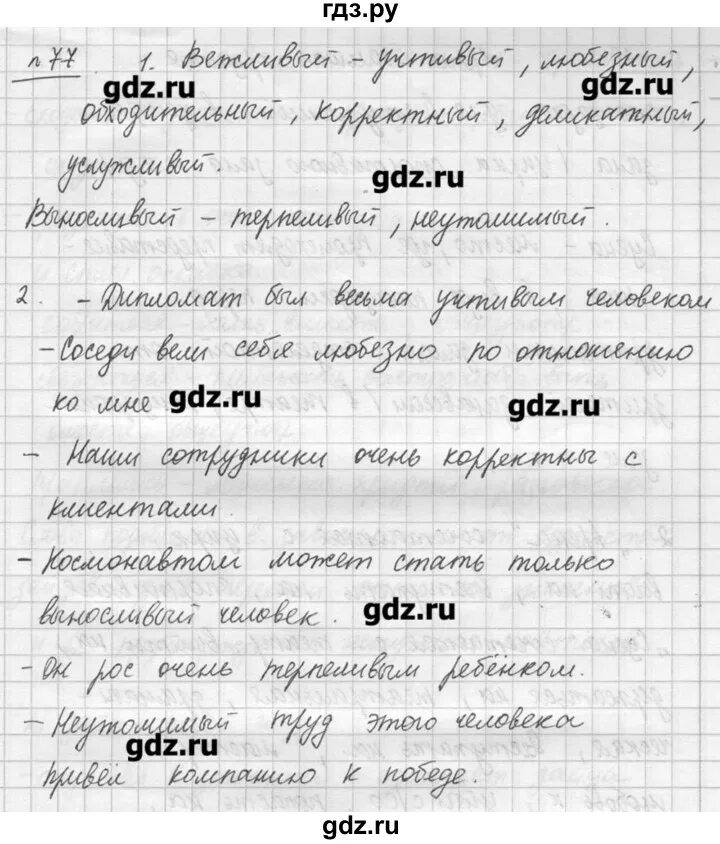 гдз.ру
№77 1. Вежливый – учтивый, любезный,
gdz.ru gdz.ru
обходительный, корректный, деликатный,
услужливый.
gdz.ru
Выносливый – терпеливый, неутомимый.
2. – Дипломат был весьма учтивым человеком
– Соседи вели себя любезно по отношению
ко мне gdz.ru
gdz.ru
– Наши сотрудники очень корректны с
клиентами.
– Космонавтом может стать только
выносливый человек. gdz.ru
– Он рос очень терпеливым ребёнком.
– Неутомимый труд этого человека
gdz.ru
привёл компанию к победе.
gdz.ru